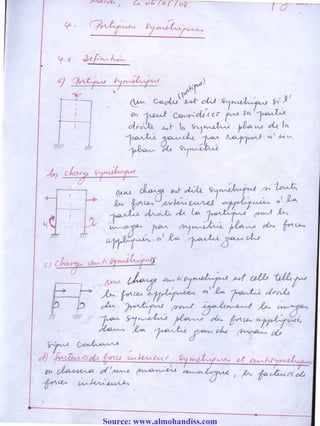 4- Portiques Symétriques
4.1 Définition
a) Portique Symétrique
Un Cadre (portique) est dit Symétrique si l'
on peut considérer que sa partie
droite est la symétrie plane de la
partie gauche par rapport à un
plan de symétrie
b) Charge symétrique
une charge est dite Symétrique si toutes
les forces extérieures appliquées à la
partie droite de la portique sont les
images par symétrie plane des forces
appliquées à la partie gauche
c) Charge antisymétrique
une charge antisymétrique est celle telle que
les forces appliquées à la partie droite
des portique sont également les images
par symétrie plane des forces appliquées
dans la partie gauche
signe Contraire
d) facteurs de force intérieure Symétrique et antisymétrique
on classera d'une manière analogue, les facteurs de
forces intérieures
Source: www.almohandiss.com